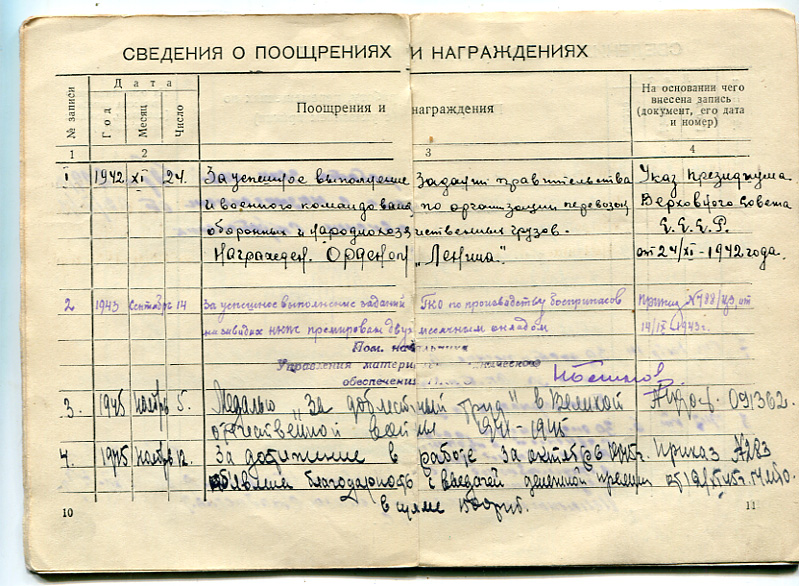 СВЕДЕНИЯ О ПООЩРЕНИЯХ И НАГРАЖДЕНИЯХ
№ записи
Дата
Год
Месяц
Число
Поощрения и награждения
На основании чего
внесена запись
(документ, его дата
и номер)
1 2 3 4
1 1942 XI 24. За успешное выполнение заданий правительства Указ Президиума
и военного командования по организации перевозок Верховного Совета
оборонных и народнохозяйственных грузов. С.С.С.Р.
Награжден Орденом "Ленина". от 24/XI-1942 года.
2 1943 Сентябрь 14 За успешное выполнение заданий ГКО по производству боеприпасов Приказ N788/ от
на заводах НКПС премирован двухмесячным окладом 14/IX 1943г.
Пом. начальника
Управления материально-технического
обеспечения
3. 1945 Ноябрь 5. Медалью "За доблестный труд" в Великой 091362.
отечественной войны 1941-1945
4. 1945 Ноябрь 12. За достижение в работе за октябрь 1945г. Приказ N283
объявлена благодарность с выдачей денежной премии
в сумме
10
11